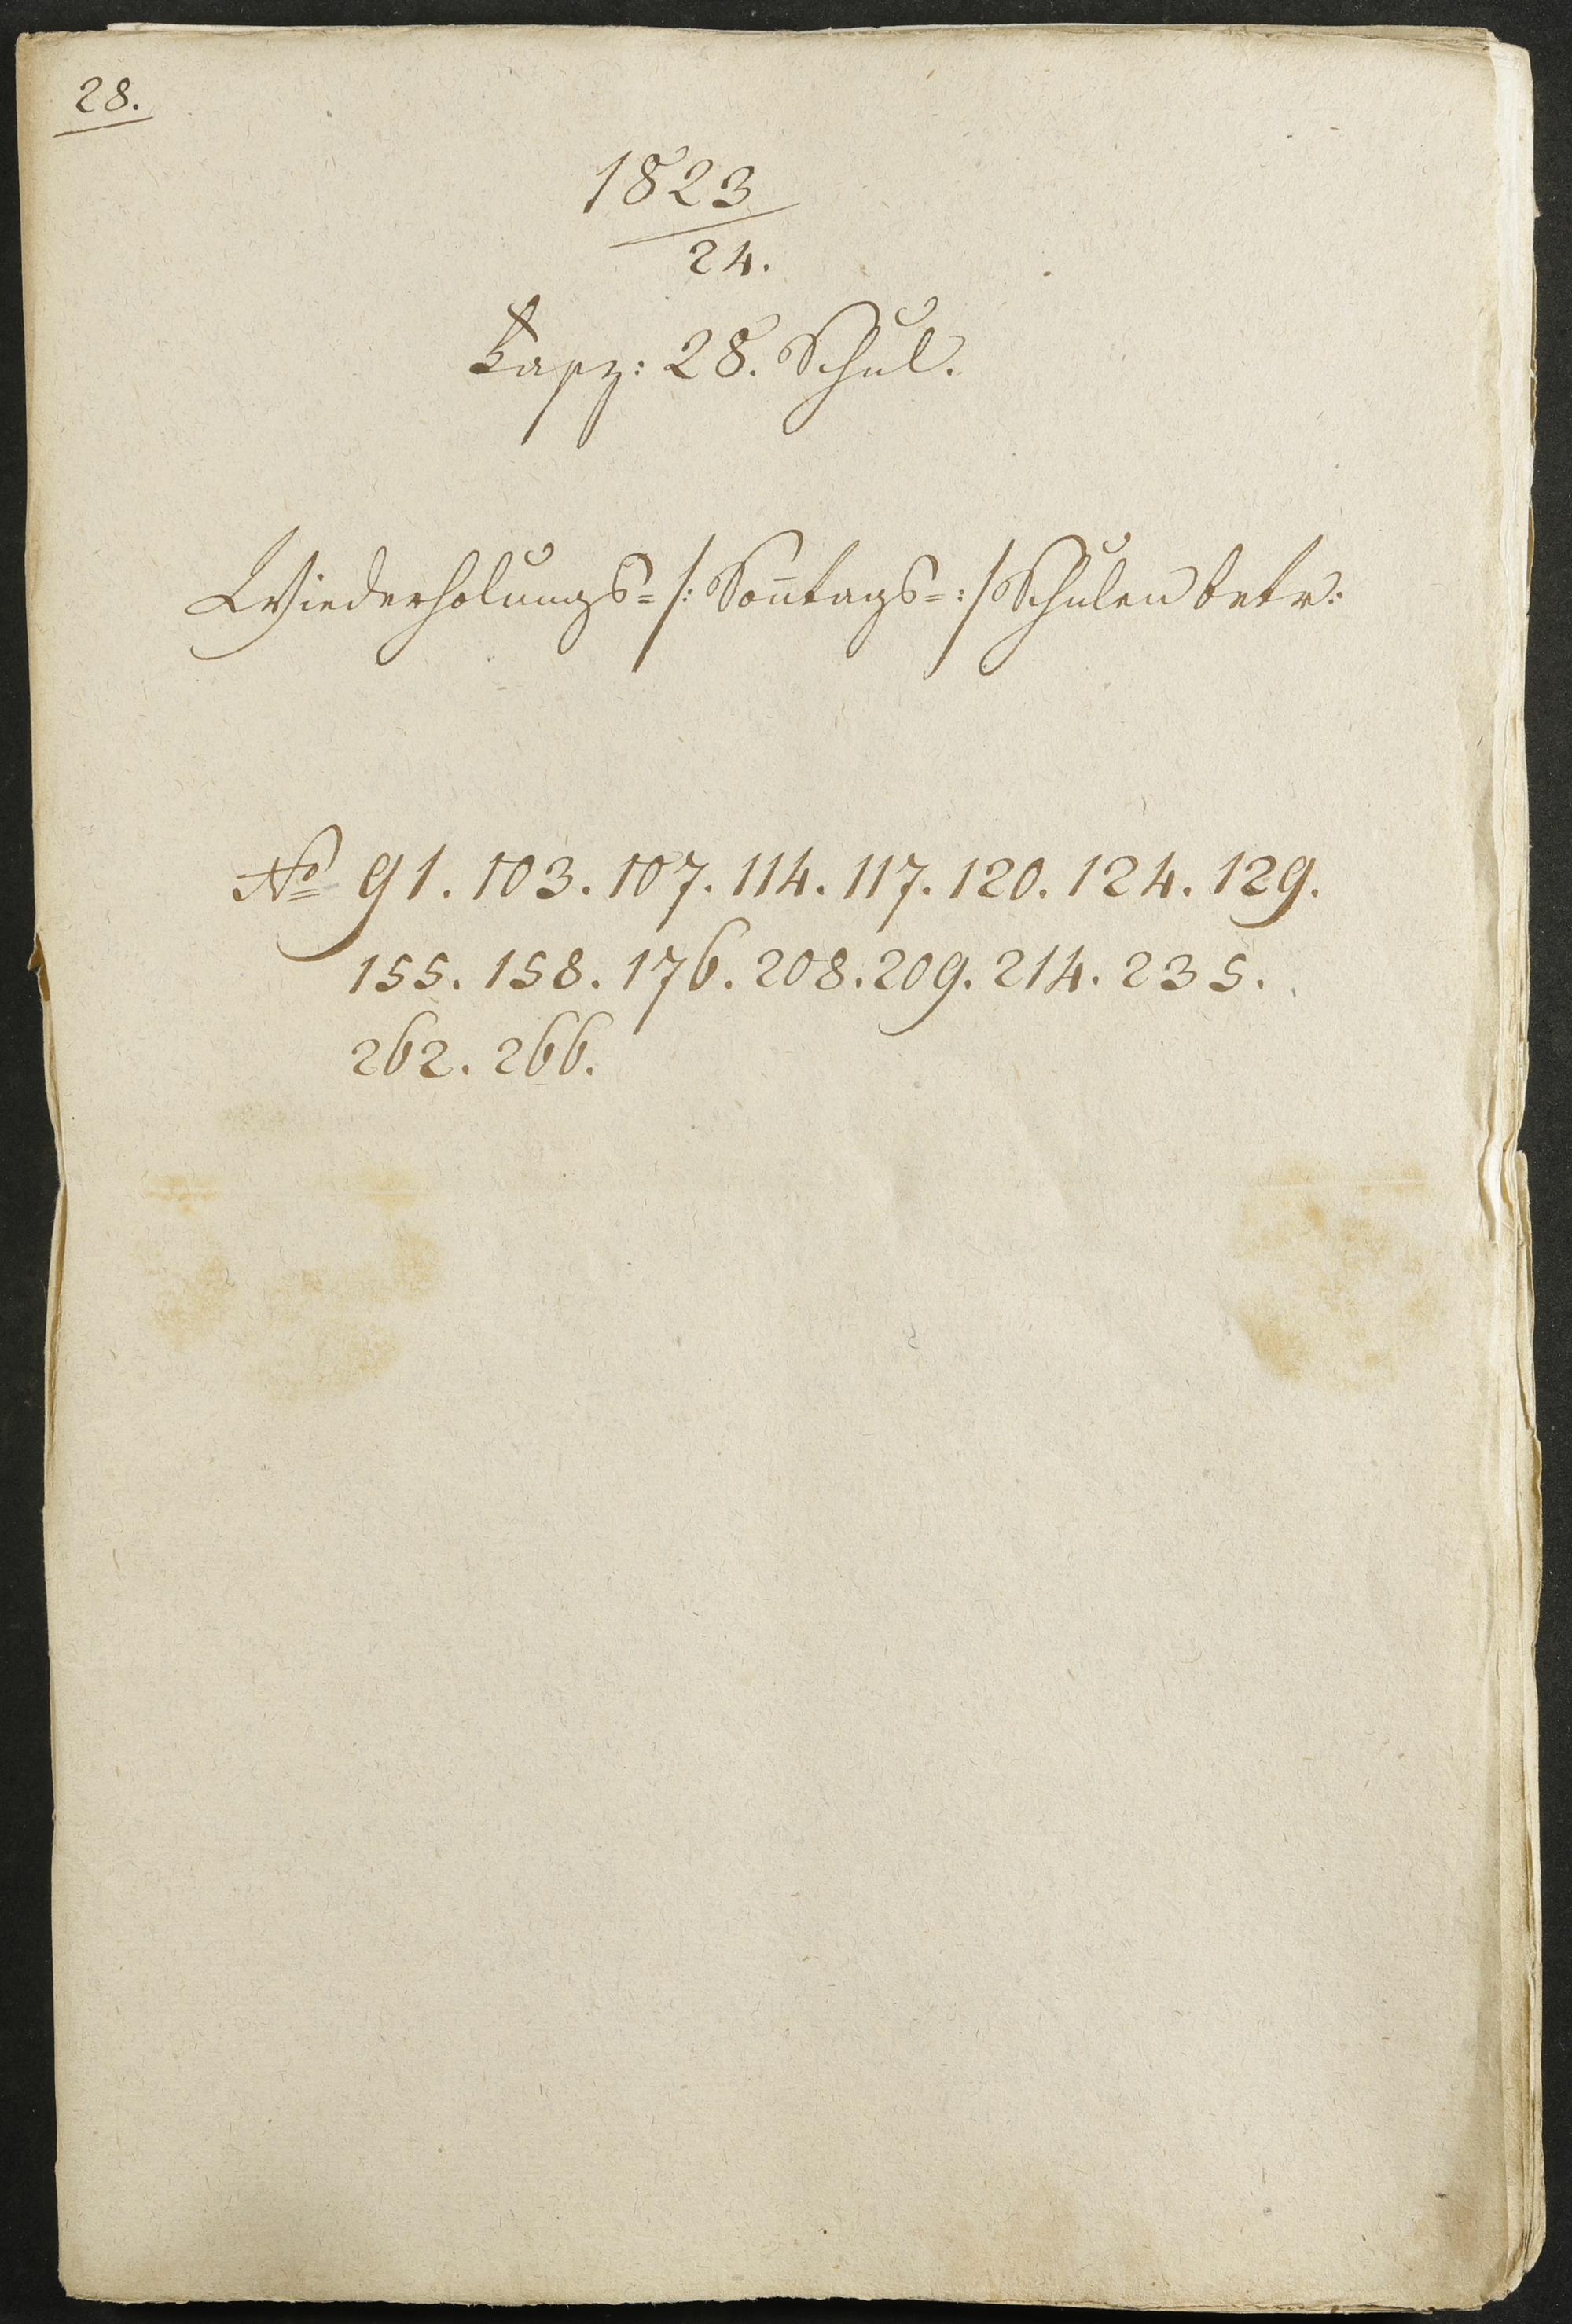 28.
1823
24.
Fasz: 28. Schul.
Wiederholungs=/: Son̄tags=:/ Schulen betr:
No 91. 103. 107. 114. 117. 120. 124. 129.
155. 158. 176. 208. 209. 214. 235.
262. 266.